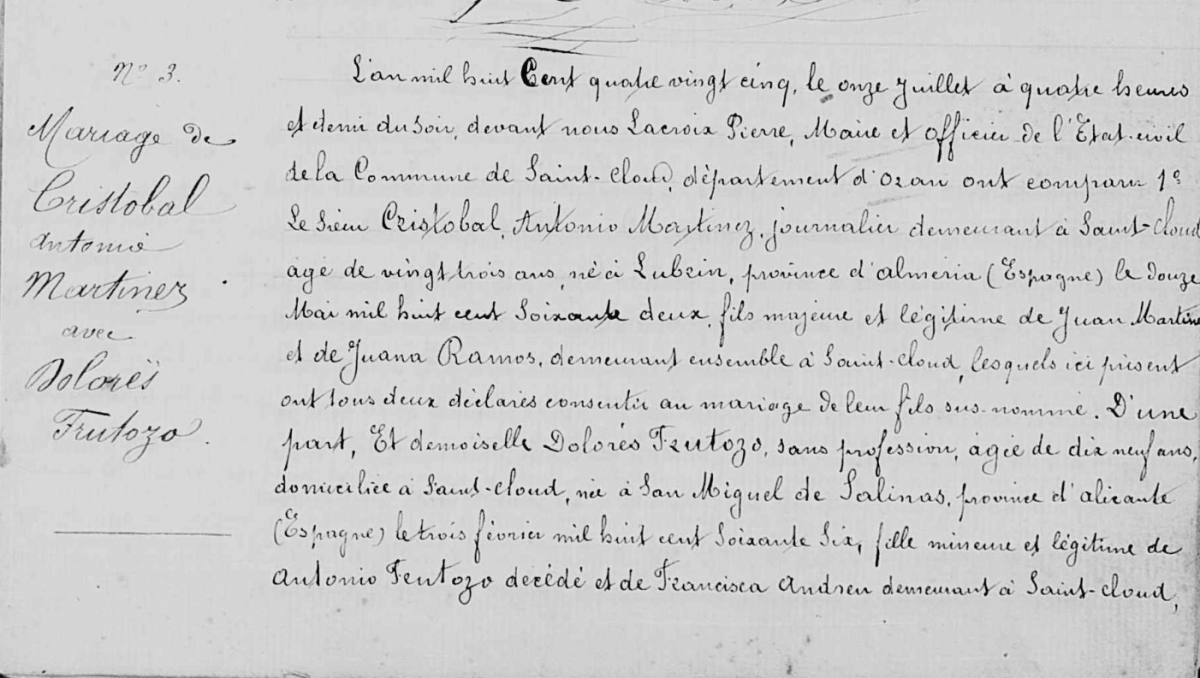 N° 3.
Mariage de
Cristobal
Antonio
Martinez
avec
Dolorès
Frutozo.
L'an mil huit Cent quatre vingt cinq, le onze Juillet à quatre heures
et demi du soir, devant nous Lacroix Pierre, Maire et officier de l'Etat-civil
de la Commune de Saint-Cloud, département d'Oran ont comparu 1°
Le Sieur Cristobal, Antonio Martinez, journalier demeurant à Saint-Cloud
âgé de vingt trois ans, né à Lubrin, province d'almeria (Espagne) le douze
Mai mil huit cent Soixante deux, fils majeure et légitime de Juan Martinez
et de Juana Ramos, demeurant ensemble à Saint-Cloud, lesquels ici présent
ont tous deux déclarés consentir au mariage de leur fils sus-nommé. D'une
part, Et demoiselle Dolorès Frutozo, sans profession, âgée de dix neuf ans,
domiciliée à Saint-Cloud, née à San Miguel de Salinas, province d'alicante
(Espagne) le trois février mil huit cent Soixante Six, fille mineure et légitime de
Antonio Frutozo décédé et de Francisca Andreu demeurant à Saint-Cloud,